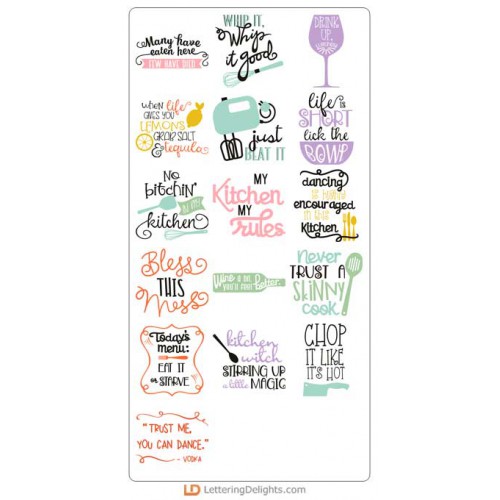 Many have
eaten here
FEW HAVE DIED
WHIP IT,
Whip
it good
DRINK
UP,
WHEN life
GIVES YOU
LEMONS
GRAB SALT
& tequila
just
BEAT IT
life IS
SHORT
lick the
BOWL
NO
bitchin'
IN MY
kitchen
MY
Kitchen
MY
rules
dancing
IS highly
encouraged
in the
kitchen
Bless
THIS
Mess
Wine & on,
you'll feel Better.
never
TRUST A
SKINNY
cook
Today's
menu:
EAT IT
or STARVE
kitchen
witch
STIRRING UP
a little MAGIC
CHOP
IT LIKE
IT'S HOT
"TRUST ME,
YOU CAN DANCE."
- VODKA
LD LetteringDelights.com